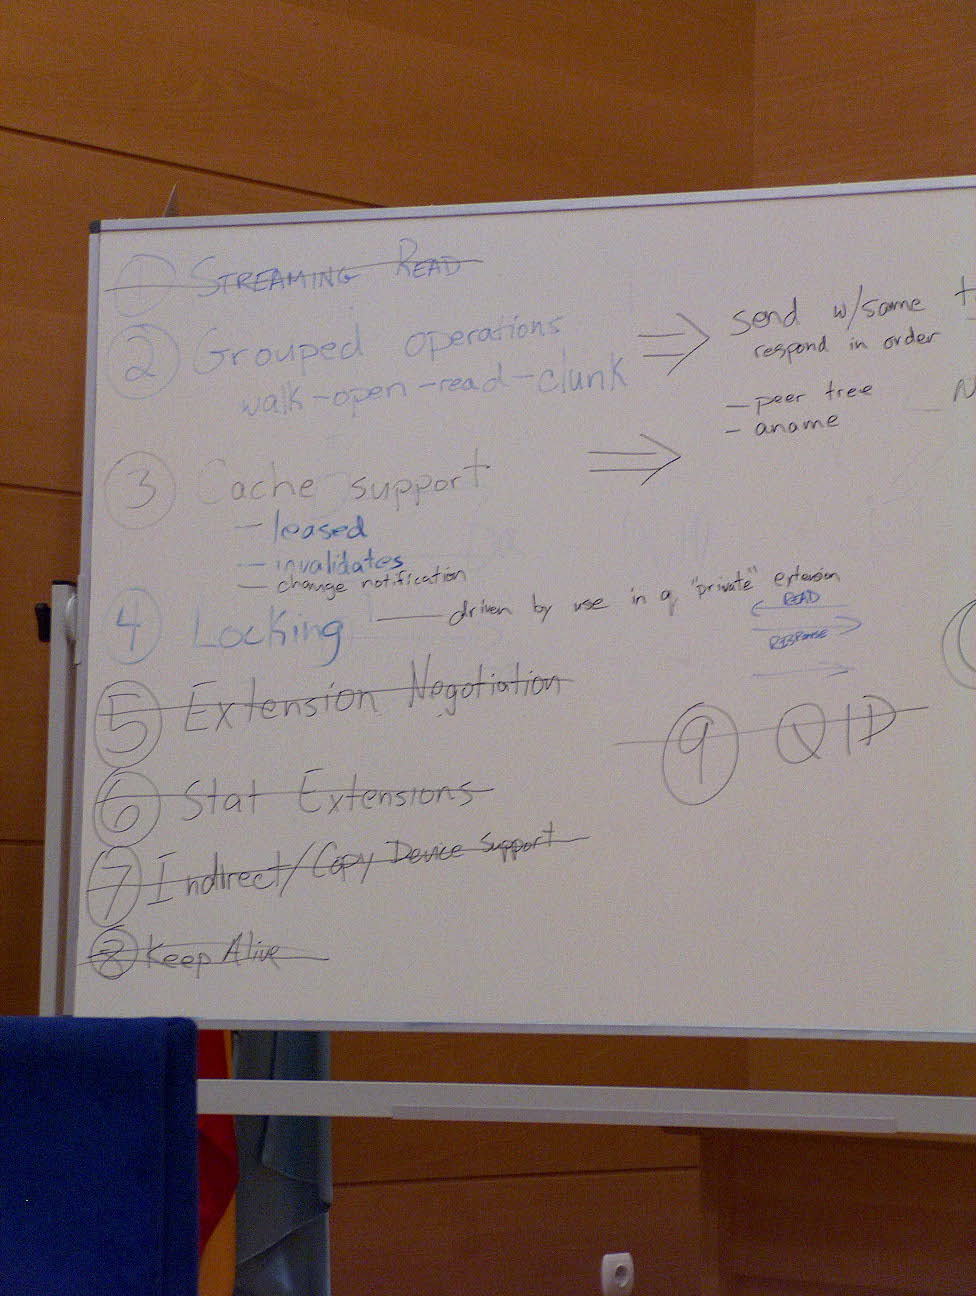 1 STREAMING READ
2 Grouped operations
walk-open-read-clunk
⇒ send w/same
respond in order
3 Cache support
⇒ - peer tree
- aname
- leased
- invalidates
- change notification
4 Locking — driven by use in a "private" extension
READ
RESPONSE
5 Extension Negotiation
6 Stat Extensions
7 Indirect/Copy Device Support
8 Keep Alive
9 QID